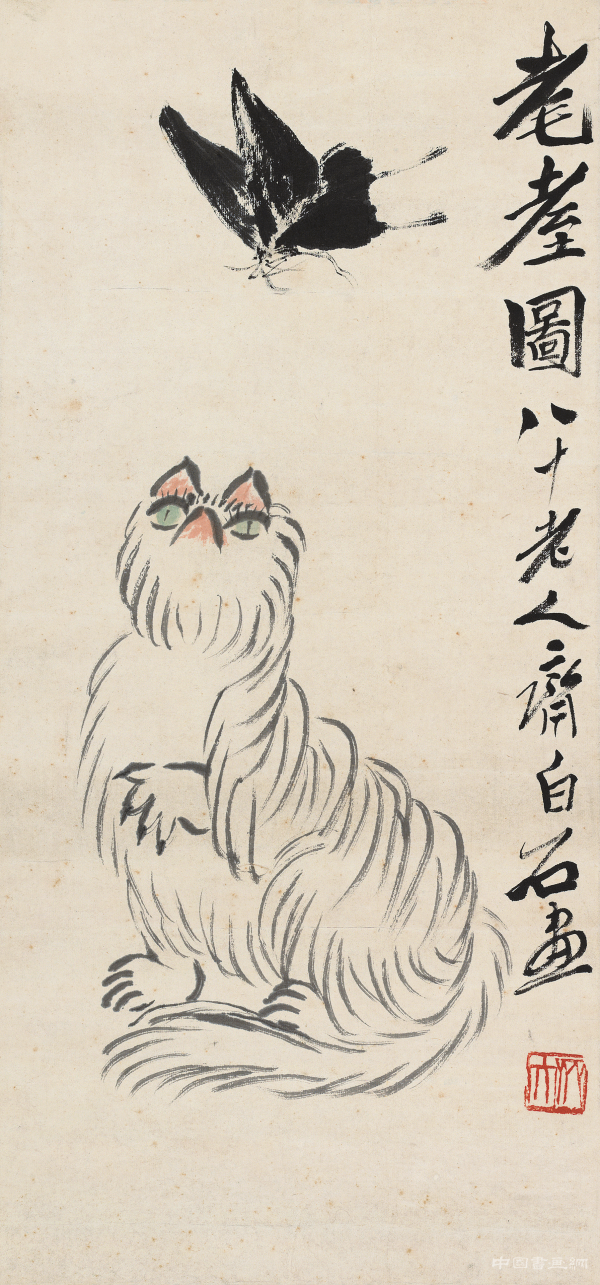 耄耋圖八十老人齊白石畫
木人
中國書畫網